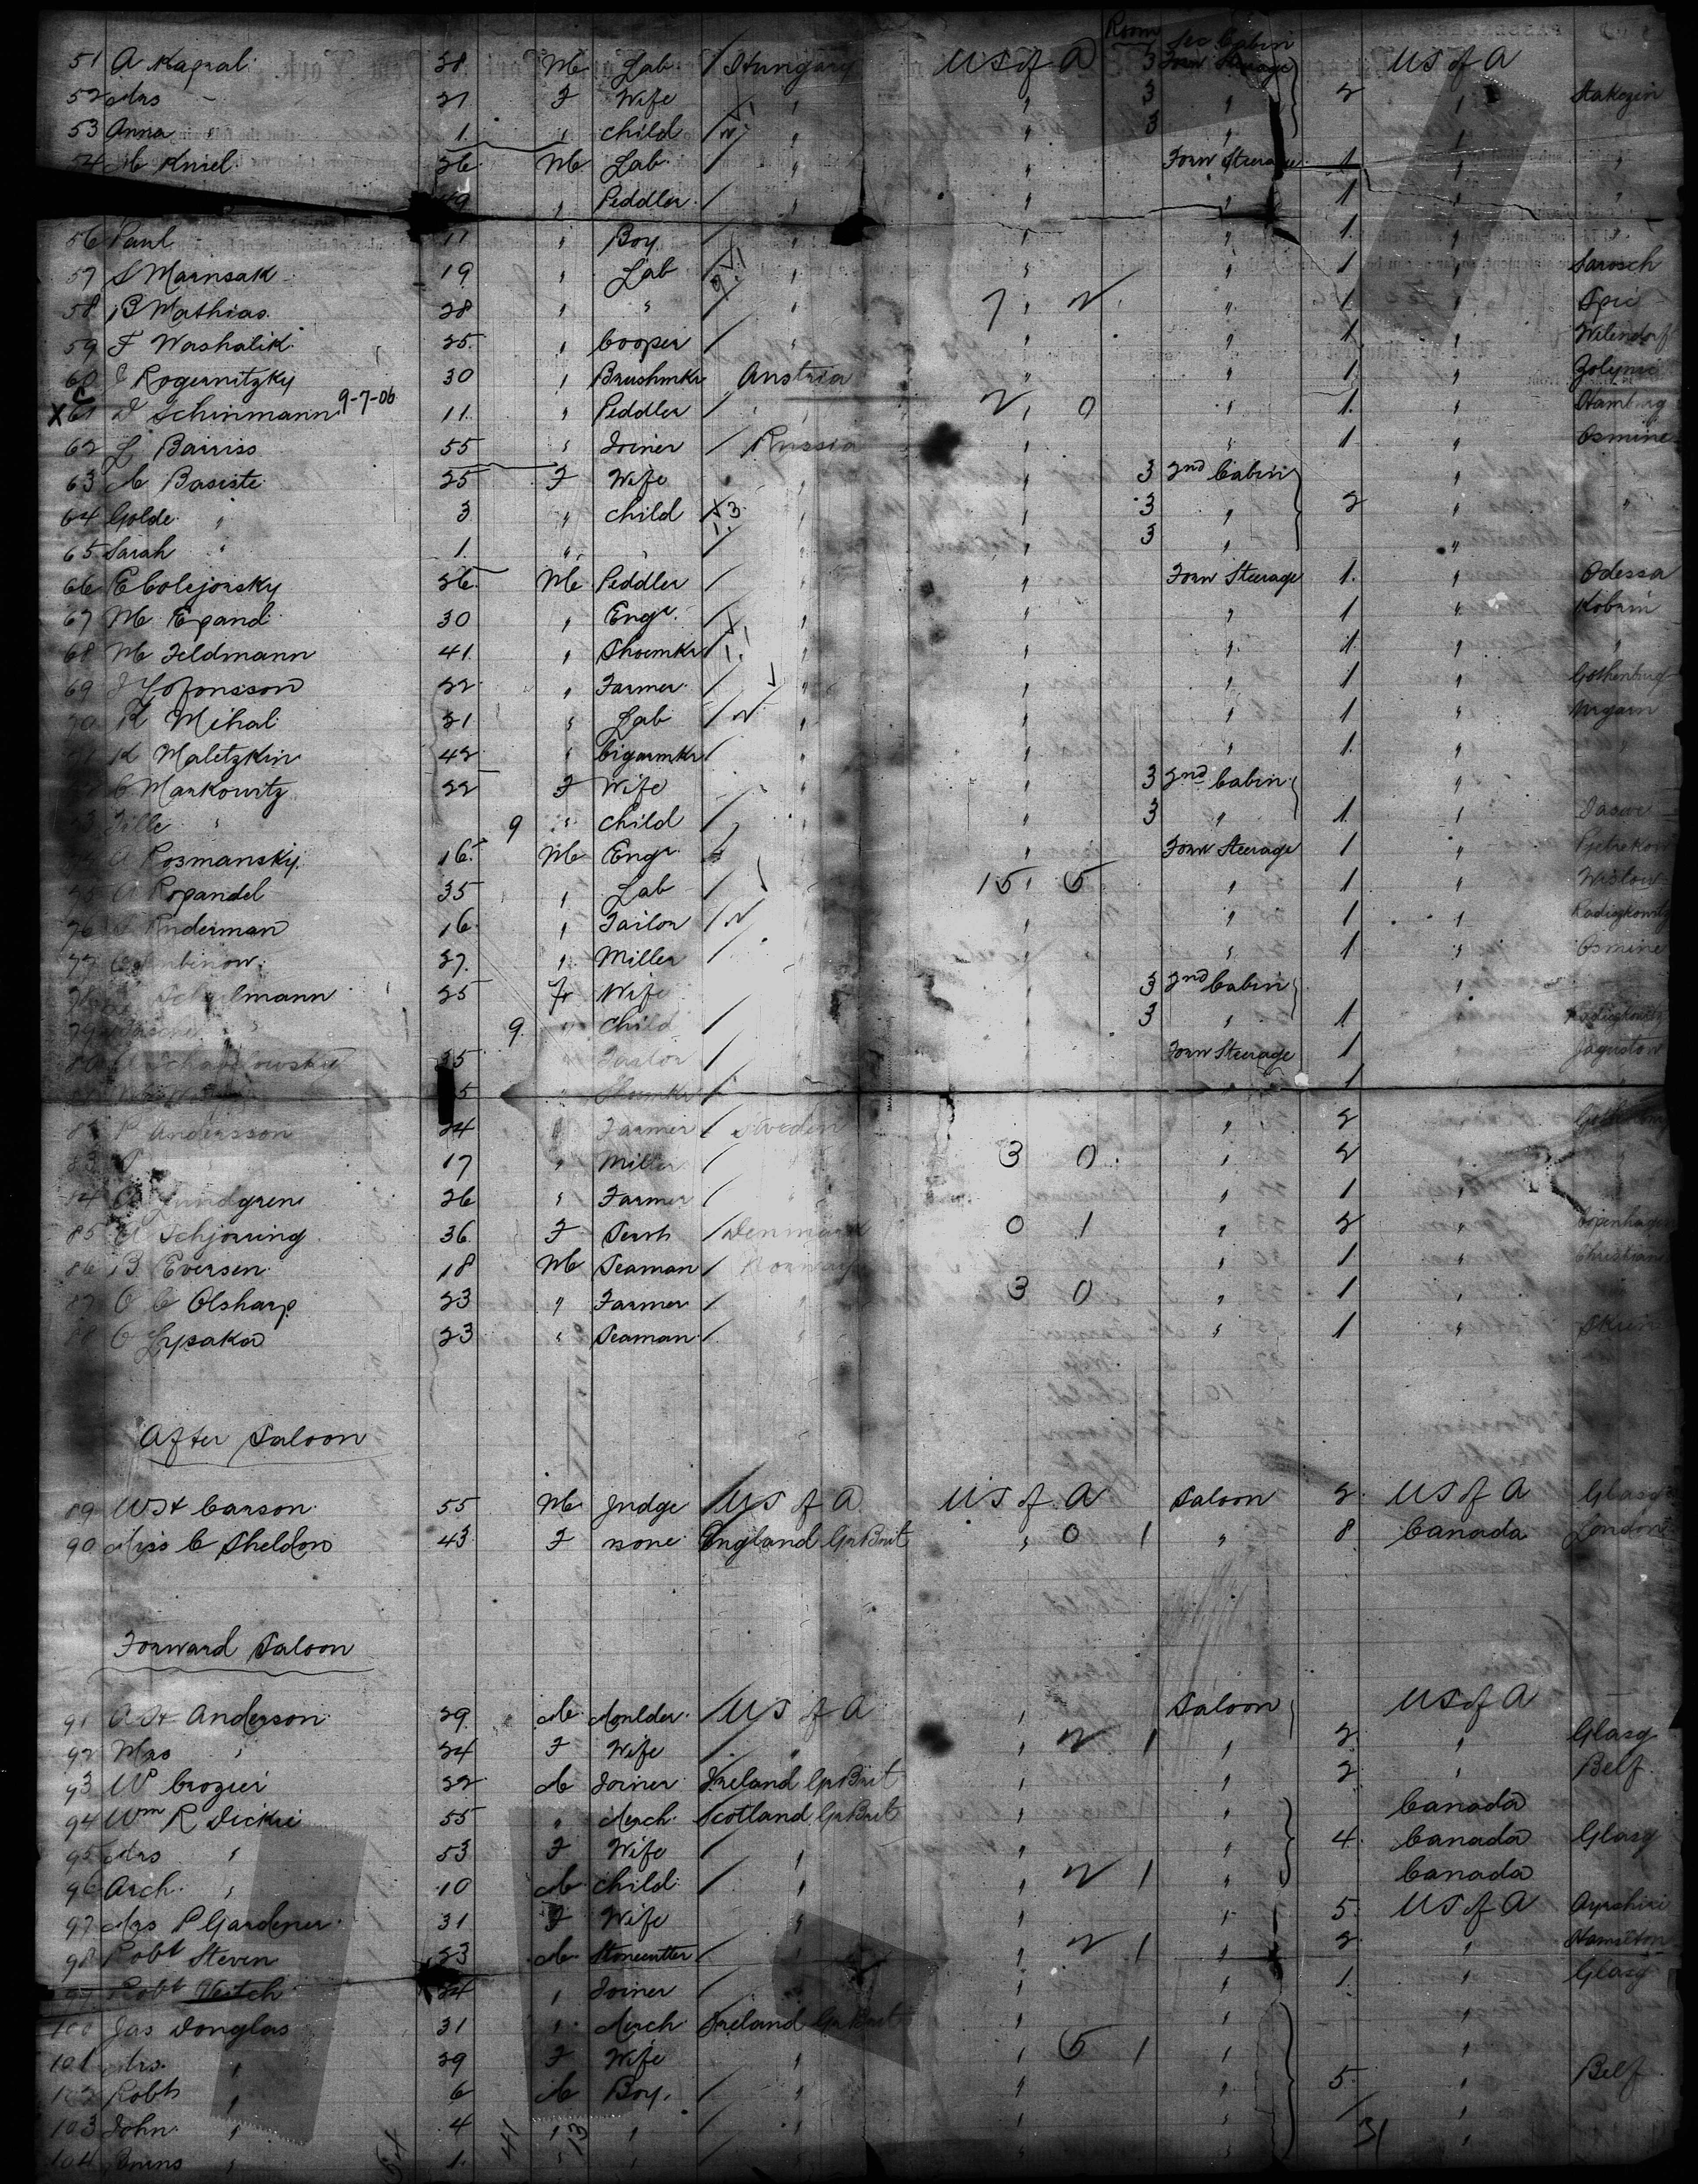 Room Sec Cabin
51 A Kapral 28 M Lab / Hungary U S of A 3 Forw Steerage U S of A
52 Mrs " 27 F Wife " " 3 " 2 " Stakozin
53 Anna " 1 " child / " " 3 " "
54 M Kniel 26 M Lab / " " Forw Steerage 1 " "
49 " Peddler / " " " 1 " "
56 Paul 11 " Boy / " " " 1 " "
57 S Marnsak 19 " Lab / " " " 1 " Sarosch
58 B Mathias 28 " " / " 7 " 2 " 1 "
59 F Washalik 25 " Cooper / " " " 1 " Wilendorf
60 J Rogernitzky 30 " Brushmkr Austria " " 1 " Zolynic
X 61 D Schinmann 9-7-06 11 " Peddler / " 2 " 0 " 1 " Hamburg
62 L Barriss 55 " Joiner / Russia " " 1 " Osmine
63 M Basiste 25 F Wife " " 3 2nd Cabin "
64 Golde " 3 " child / 3 " " 3 " 2 " "
65 Sarah " 1 " " / " " 3 " "
66 E Colejorsky 26 M Peddler / " " Forw Steerage 1 " Odessa
67 M Epand 30 " Engr / " " " 1 " Kobrin
68 M Feldmann 41 " Shoemkr / " " " 1 " "
69 J Jofonsson 22 " Farmer / " " " 1 " Gothenburg
70 K Mihal 21 " Lab / " " " 1 " Wrgarn
71 K Maletzkin 42 " Cigarmkr / " " " 1 " "
C Markowitz 22 F Wife " " 3 2nd Cabin "
Tille " 9 " child / " " 3 " 1 "
A Rosmansky 16 M Engr " Forw Steerage 1 " Petrekow
75 A Rogandel 35 " Lab / 15 " 5 " 1 " Wistow
76 Ruderman 16 " Tailor / " " 1 " Radiszkowitz
77 27 " Miller / " " 1 " Osmine
Schulmann 25 F Wife 3 2nd Cabin "
79 " 9 " Child / 3 " 1 Radiszkowitz
80 35 " Tailor / Forw Steerage 1 Jagustow
5 " Shoemkr / " 1 "
P Andersson 24 " Farmer / Sweden " 2
17 " Miller / 3 0 " 2 "
84 Lundgren 26 " Farmer / " " 1 "
85 A Schjorring 36 F Servt / Denmark 0 1 " 2 " Copenhagen
86 B Eversen 18 M Seaman / Norway " 1 " Christian
87 O C Olsharp 23 " Farmer / " 3 0 " 1 "
88 C Lysaker 23 " Seaman / " " 1 " Skien
After Saloon
89 W H Carson 55 M Judge / U S of A U S of A Saloon 2 U S of A Glasg
90 Miss C Sheldon 43 F none England Gr Brit " 0 1 " 8 Canada London
Forward Saloon
91 A H Anderson 29 M Moulder / U S of A " Saloon U S of A
92 Mrs " 24 F Wife / " " 2 1 " 2 " Glasg
93 W Crozier 22 M Joiner Ireland Gr Brit " " 2 " Belf
94 Wm R Dickie 55 " Merch Scotland Gr Brit " " Canada
95 Mrs " 53 F Wife / " " " 4 Canada Glasg
96 Arch " 10 M child / " " 2 1 " Canada
97 Mrs P Gardener 31 F Wife " " " 5 U S of A Ayrshire
98 Robt Steven 23 M Stonecutter / " " 2 1 " 2 " Hamilton
99 Robt Veitch 24 " Joiner / " " " 1 " Glasg
100 Jas Douglas 31 " Merch Ireland Gr Brit " " "
101 Mrs " 29 F Wife " " 5 1 " "
102 Robt " 6 M Boy / " " " 5 " Belf
103 John " 4 " " / " " " "
104 " 1 " " / " " " "
41 13 31